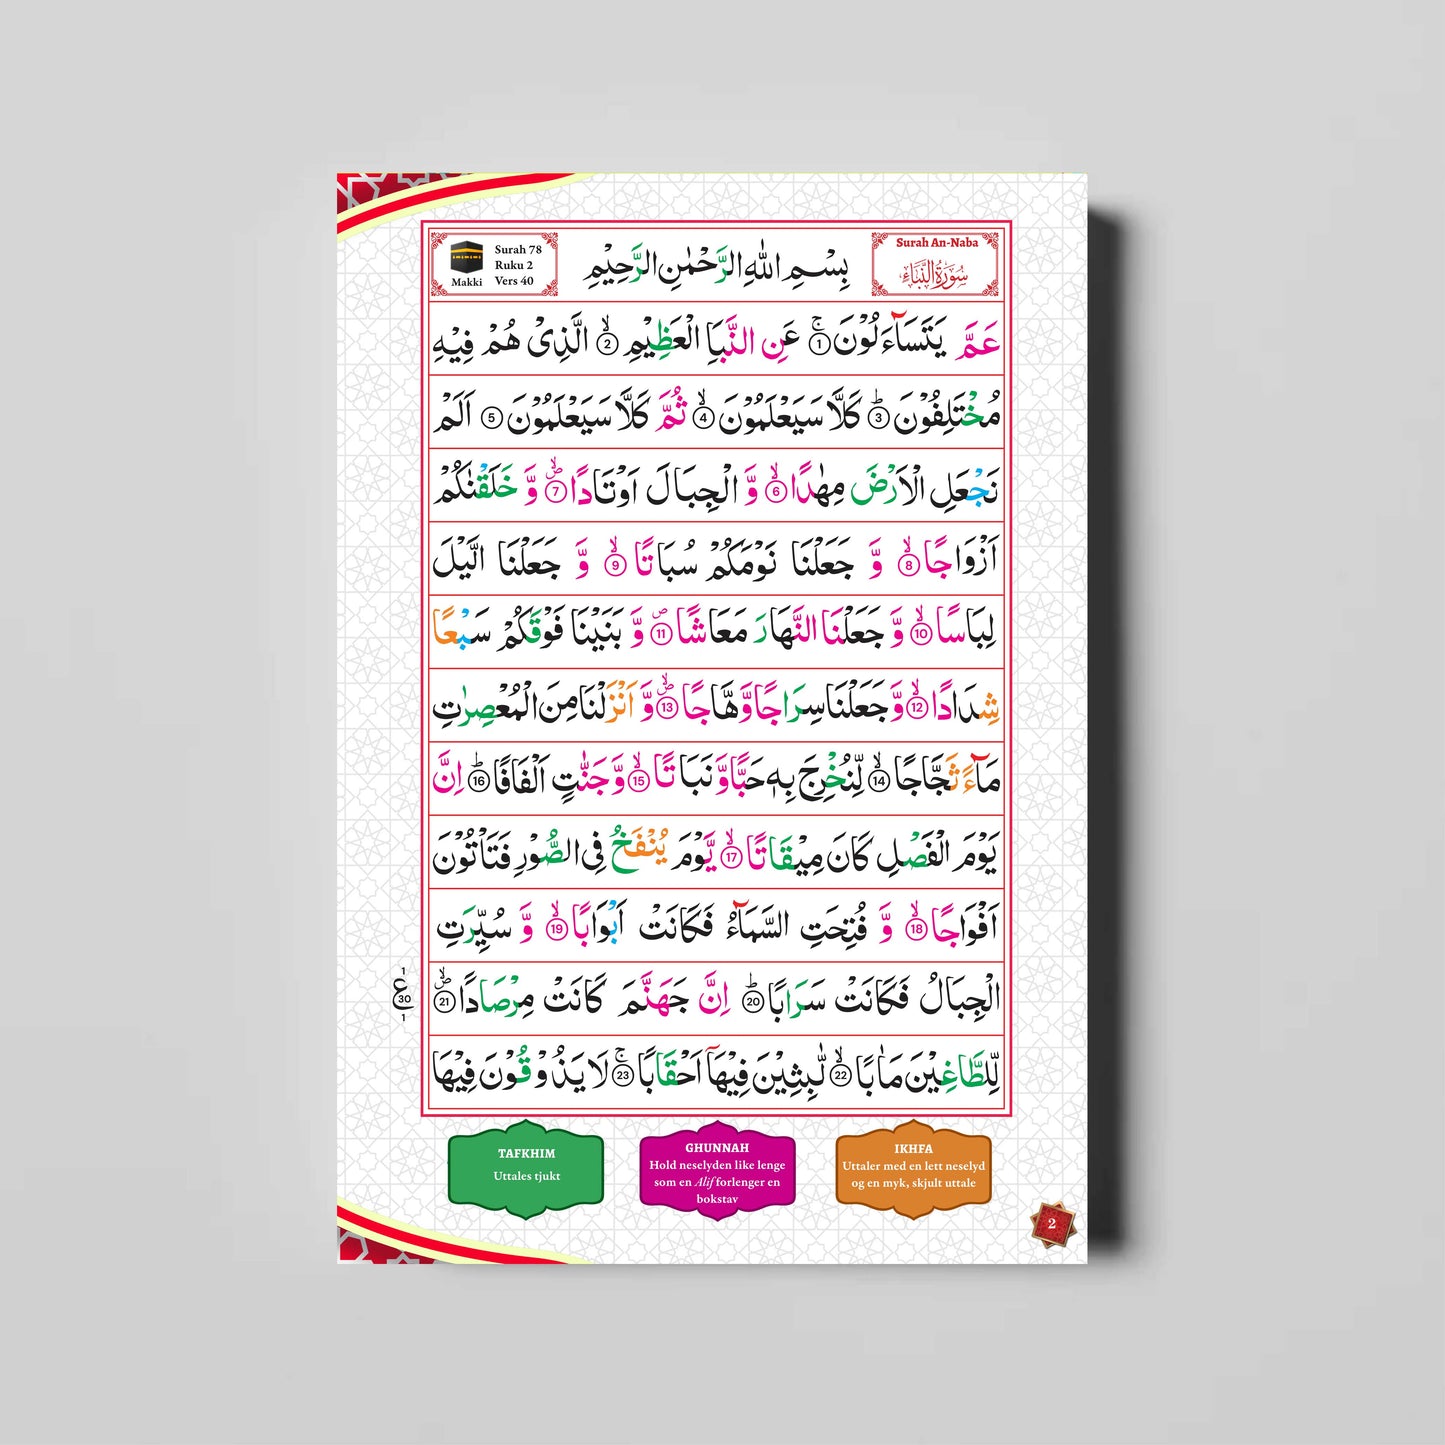 Surah 78
Ruku 2
Vers 40
Makki
بِسْمِ اللّٰهِ الرَّحْمٰنِ الرَّحِيْمِ
Surah An-Naba
سُوْرَةُ النَّبَاءِ
عَمَّ يَتَسَآءَلُوْنَ ۚ 1 عَنِ النَّبَاِ الْعَظِيْمِ ۙ 2 الَّذِيْ هُمْ فِيْهِ
مُخْتَلِفُوْنَ ؕ 3 كَلَّا سَيَعْلَمُوْنَ ۙ 4 ثُمَّ كَلَّا سَيَعْلَمُوْنَ 5 اَلَمْ
نَجْعَلِ الْاَرْضَ مِهٰدًا ۙ 6 وَّ الْجِبَالَ اَوْتَادًا ۙ 7 وَّ خَلَقْنٰكُمْ
اَزْوَاجًا ۙ 8 وَّ جَعَلْنَا نَوْمَكُمْ سُبَاتًا ۙ 9 وَّ جَعَلْنَا الَّيْلَ
لِبَاسًا ۙ 10 وَّ جَعَلْنَا النَّهَارَ مَعَاشًا ۪ 11 وَّ بَنَيْنَا فَوْقَكُمْ سَبْعًا
شِدَادًا ۙ 12 وَّ جَعَلْنَا سِرَاجًا وَّهَّاجًا ۙ 13 وَّ اَنْزَلْنَا مِنَ الْمُعْصِرٰتِ
مَآءً ثَجَّاجًا ۙ 14 لِّنُخْرِجَ بِهٖ حَبًّا وَّ نَبَاتًا ۙ 15 وَّ جَنّٰتٍ اَلْفَافًا ؕ 16 اِنَّ
يَوْمَ الْفَصْلِ كَانَ مِيْقَاتًا ۙ 17 يَّوْمَ يُنْفَخُ فِى الصُّوْرِ فَتَاْتُوْنَ
اَفْوَاجًا ۙ 18 وَّ فُتِحَتِ السَّمَآءُ فَكَانَتْ اَبْوَابًا ۙ 19 وَّ سُيِّرَتِ
الْجِبَالُ فَكَانَتْ سَرَابًا ؕ 20 اِنَّ جَهَنَّمَ كَانَتْ مِرْصَادًا ۙ 21
1
ع
30
1
لِّلطَّاغِيْنَ مَاٰبًا ۙ 22 لّٰبِثِيْنَ فِيْهَاۤ اَحْقَابًا ۚ 23 لَا يَذُوْقُوْنَ فِيْهَا
TAFKHIM
Uttales tjukt
GHUNNAH
Hold neselyden like lenge
som en Alif forlenger en
bokstav
IKHFA
Uttaler med en lett neselyd
og en myk, skjult uttale
2